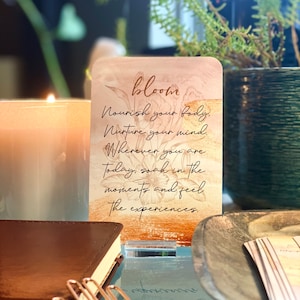 bloom
Nourish your body.
Nurture your mind.
Wherever you are
today, soak in the
moments and feel
the experiences.